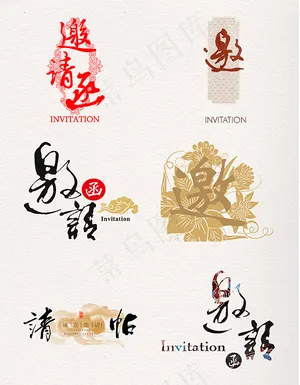 邀请函
INVITATION
邀
INVITATION
邀請
函
Invitation
邀
請帖
邀請
Invitation
函